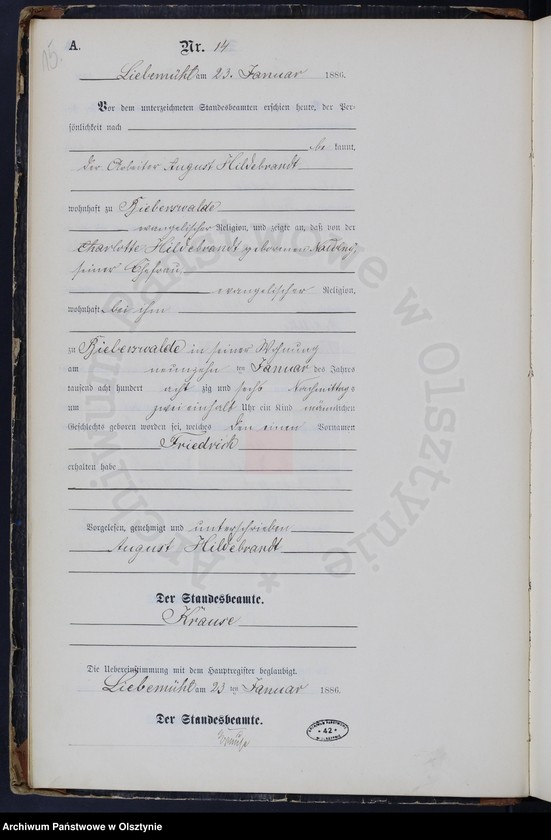 15.
A.
Nr. 14
Liebemühl am 23. Januar 1886.
Vor dem unterzeichneten Standesbeamten erschien heute, der Per-
sönlichkeit nach
be kannt,
der Arbeiter August Hildebrandt
wohnhaft zu Bieberswalde
evangelischer Religion, und zeigte an, daß von der
Charlotte Hildebrandt geborenen
seiner Ehefrau
evangelischer Religion,
wohnhaft bei ihm
zu Bieberswalde in seiner Wohnung
am neunzehn ten Januar des Jahres
tausend acht hundert acht zig und sechs Nachmittags
um zweieinhalb Uhr ein Kind männlichen
Geschlechts geboren worden sei, welches den einen Vornamen
Friedrich
erhalten habe
Vorgelesen, genehmigt und unterschrieben
August Hildebrandt
Der Standesbeamte.
Krause
Die Uebereinstimmung mit dem Hauptregister beglaubigt.
Liebemühl am 23 ten Januar 1886.
Der Standesbeamte.
Krause
* 42 *
Archiwum Państwowe w Olsztynie *
Archiwum Państwowe w Olsztynie